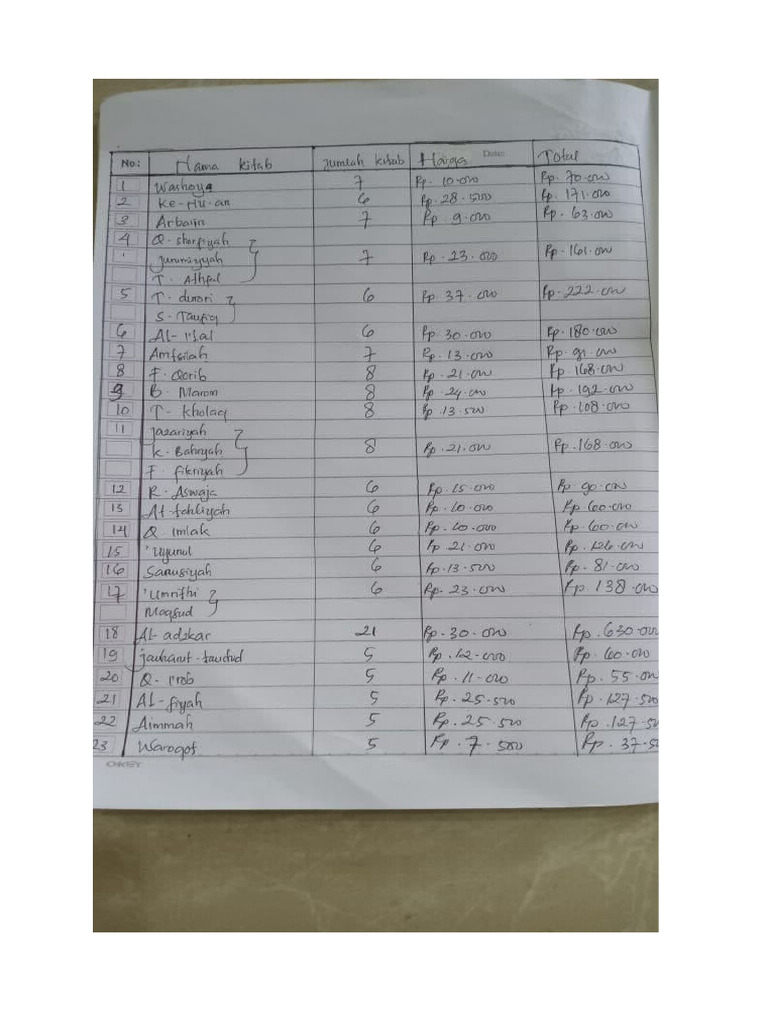 No: Nama kitab Jumlah kitab Harga Date: Total
1 Washoya 7 Rp. 10.000 Rp. 70.000
2 Ke-NU-an 6 Rp. 28.500 Rp. 171.000
3 Arbain 7 Rp 9.000 Rp. 63.000
4 Q. shorfiyah
Jurumiyyah 7 Rp. 23.000 Rp. 161.000
T. Athfal
5 T. durori 6 Rp 37.000 Rp. 222.000
S. Taufiq
6 Al-I'lal 6 Rp 30.000 Rp. 180.000
7 Amtsilah 7 Rp. 13.000 Rp. 91.000
8 F. Qorib 8 Rp. 21.000 Rp. 168.000
9 B. Marom 8 Rp. 24.000 Rp. 192.000
10 T. Kholaq 8 Rp. 13.500 Rp. 108.000
11 Jazariyah
K. Bahiyah 8 Rp. 21.000 Rp. 168.000
F. fikriyah
12 R. Aswaja 6 Rp. 15.000 Rp. 90.000
13 At-tahliyah 6 Rp. 10.000 Rp. 60.000
14 Q. Imlak 6 Rp. 10.000 Rp. 60.000
15 'Uyunul 6 Rp. 21.000 Rp. 126.000
16 Sanusiyah 6 Rp. 13.500 Rp. 81.000
17 'Umrithi 6 Rp. 23.000 Rp. 138.000
Maqsud
18 Al-adzkar 21 Rp. 30.000 Rp. 630.000
19 Jauharut-tauchid 5 Rp. 12.000 Rp. 60.000
20 Q. I'rob 5 Rp. 11.000 Rp. 55.000
21 Al-fiyah 5 Rp. 25.500 Rp. 127.500
22 Aimmah 5 Rp. 25.500 Rp. 127.50
23 Waroqot 5 Rp. 7.500 Rp. 37.50
OKEY